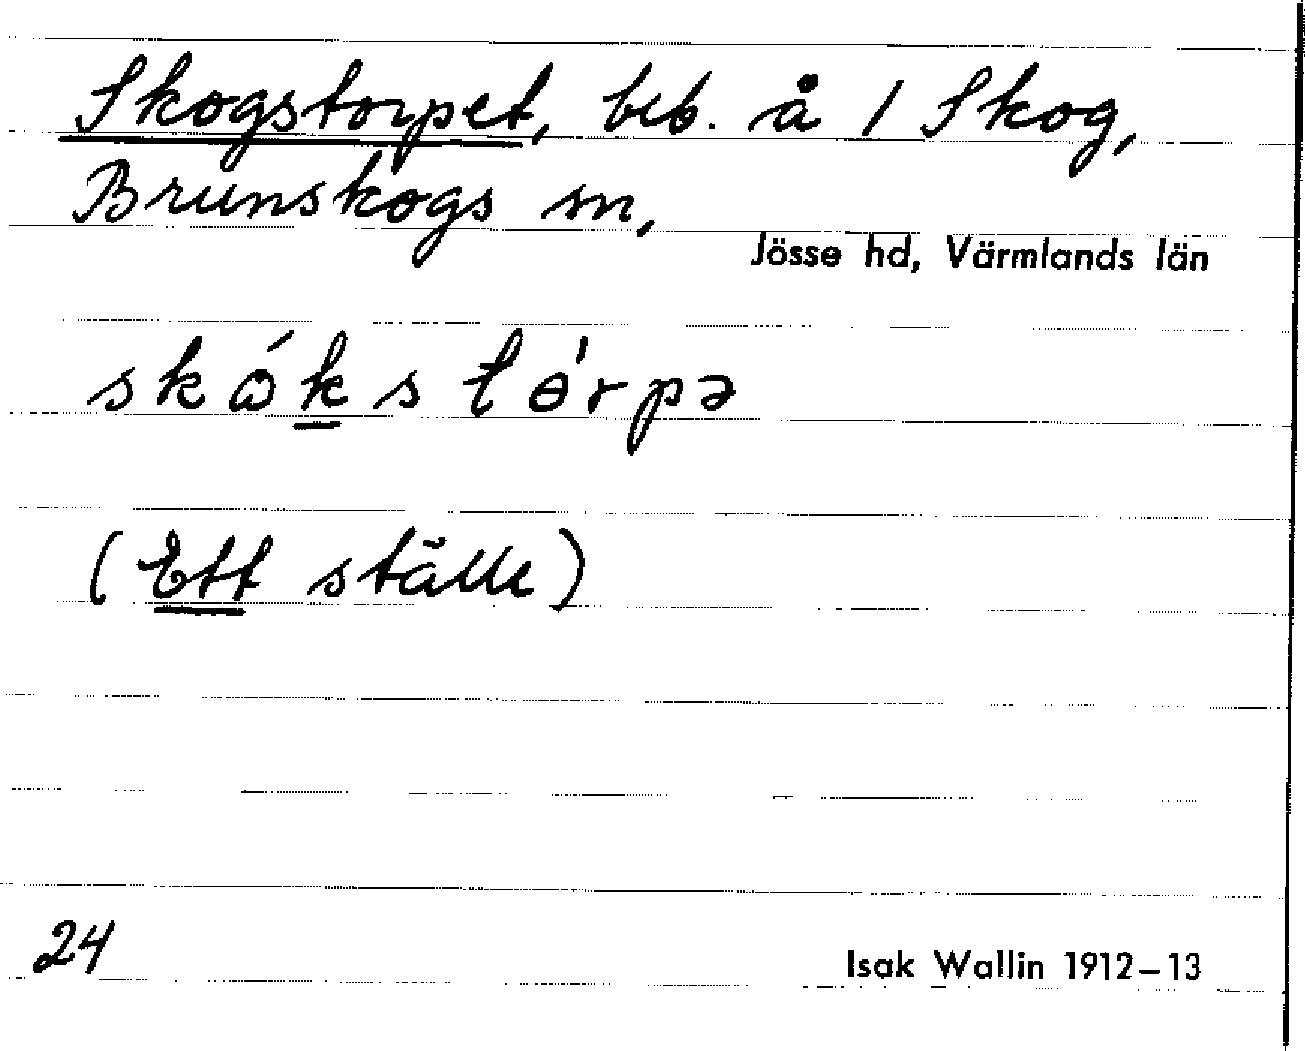 Skogstorpet, beb. å 1 Skog,
Brunskogs sn,
Jösse hd, Värmlands län
skɷ́ks tɵ́rpə
(Ett ställe)
24
Isak Wallin 1912–13